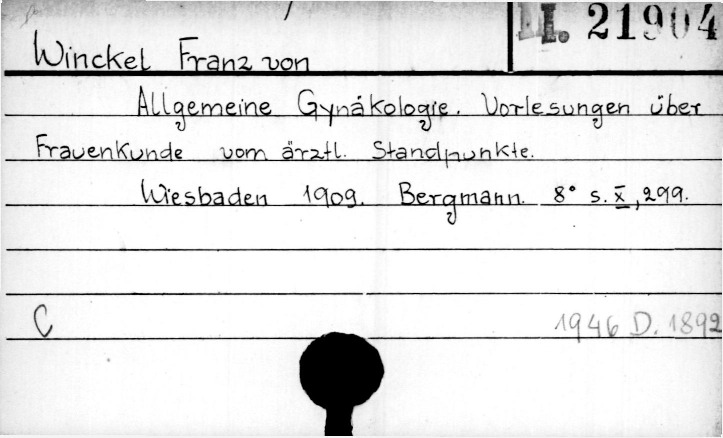 II. 21904
Winckel Franz von
Allgemeine Gynäkologie. Vorlesungen über
Frauenkunde vom ärztl. Standpunkte.
Wiesbaden 1909. Bergmann. 8° s. X, 299.
C 1946 D. 1892